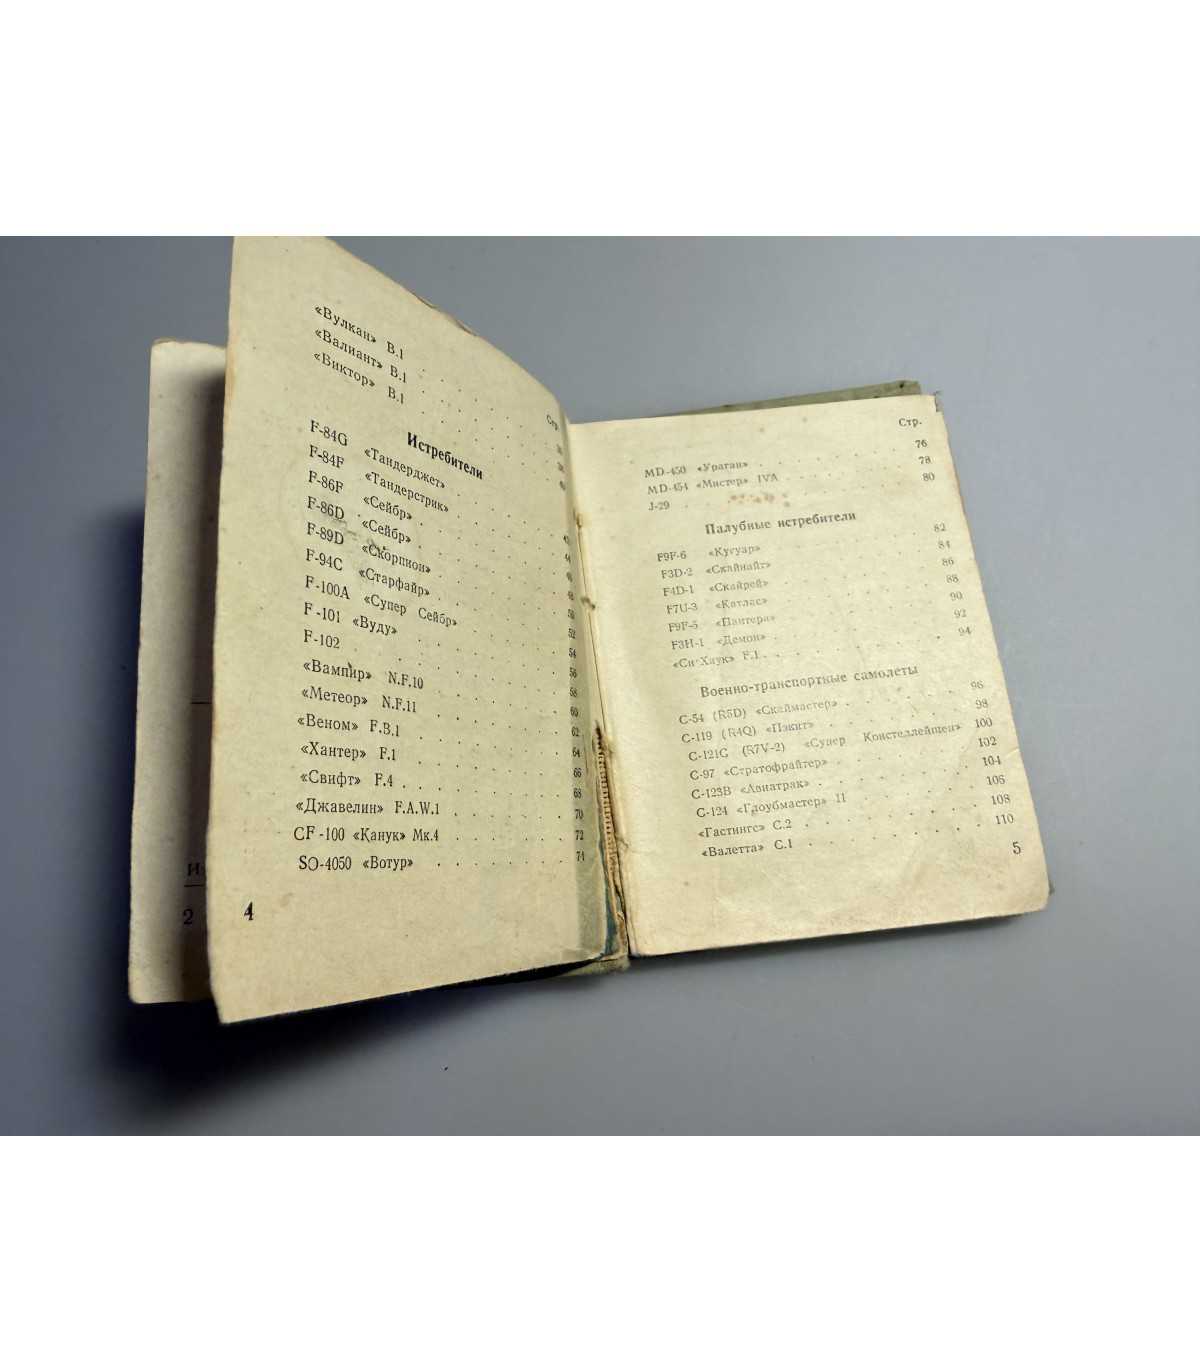 Стр.
«Вулкан» В.1 . . . . . .
«Валиант» В.1 . . . . . .
«Виктор» В.1 . . . . . .
Истребители
F-84G «Тандерджет» . . . . .
F-84F «Тандерстрик» . . . . . 44
F-86F «Сейбр» . . . . . . 46
F-86D «Сейбр» . . . . . . 48
F-89D «Скорпион» . . . . . 50
F-94C «Старфайр» . . . . . 52
F-100A «Супер Сейбр» . . . . 54
F-101 «Вуду» . . . . . . 56
F-102 . . . . . . . 58
«Вампир» N.F.10 . . . . . 60
«Метеор» N.F.11 . . . . . 62
«Веном» F.B.1 . . . . . 64
«Хантер» F.1 . . . . . . 66
«Свифт» F.4 . . . . . . 68
«Джавелин» F.A.W.1 . . . . . 70
CF-100 «Канук» Мк.4 . . . . . 72
SO-4050 «Вотур» . . . . . . 74
4
И
2
Стр.
MD-450 «Ураган» . . . . . . 76
MD-454 «Мистер» IVA . . . . . 78
J-29 . . . . . . . 80
Палубные истребители
F9F-6 «Кугуар» . . . . . . 82
F3D-2 «Скайнайт» . . . . . 84
F4D-1 «Скайрей» . . . . . 86
F7U-3 «Катлас» . . . . . . 88
F9F-5 «Пантера» . . . . . 90
F3H-1 «Демон» . . . . . . 92
«Си Хаук» F.1 . . . . . . 94
Военно-транспортные самолеты
C-54 (R5D) «Скаймастер» . . . . . 96
C-119 (R4Q) «Пэкит» . . . . . 98
C-121C (R7V-2) «Супер Констеллейшен» 100
C-97 «Стратофрайтер» . . . . . 102
C-123B «Авиатрак» . . . . . 104
C-124 «Глоубмастер» II . . . . . 106
«Гастингс» С.2 . . . . . . 108
«Валетта» С.1 . . . . . . 110
5